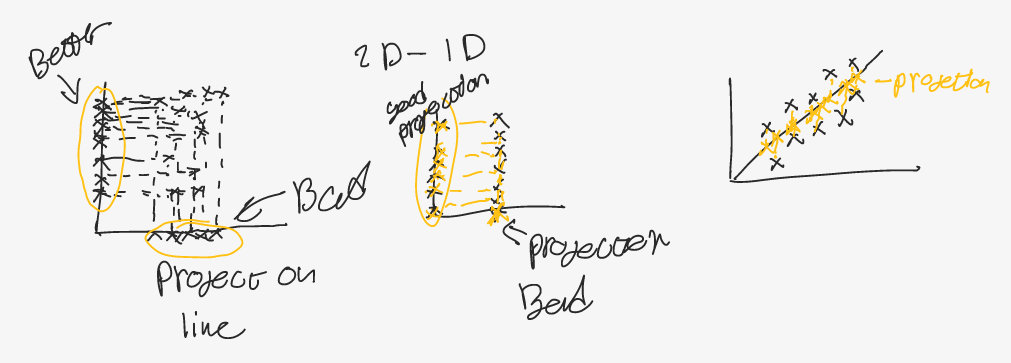 Better
Bad
Project on
line
2D - 1D
good
projection
projection
Bad
- projection